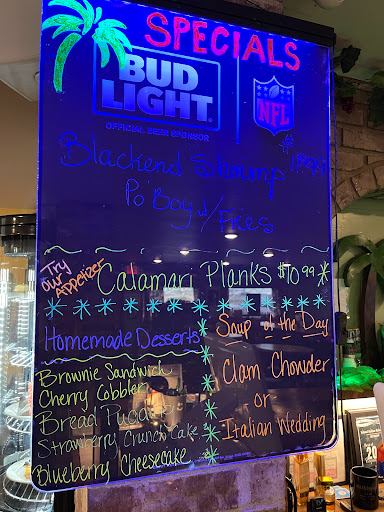 SPECIALS
BUD
LIGHT
OFFICIAL BEER SPONSOR
NFL
Blackend Shrimp
Po Boy w/ Fries
Try
our
Appetizer
Calamari Planks $10.99
Homemade Desserts
Brownie Sandwich
Cherry Cobbler
Bread Pudding
Strawberry Crunch Cake
Blueberry Cheesecake
Soup of the Day
Clam Chowder
or
Italian Wedding